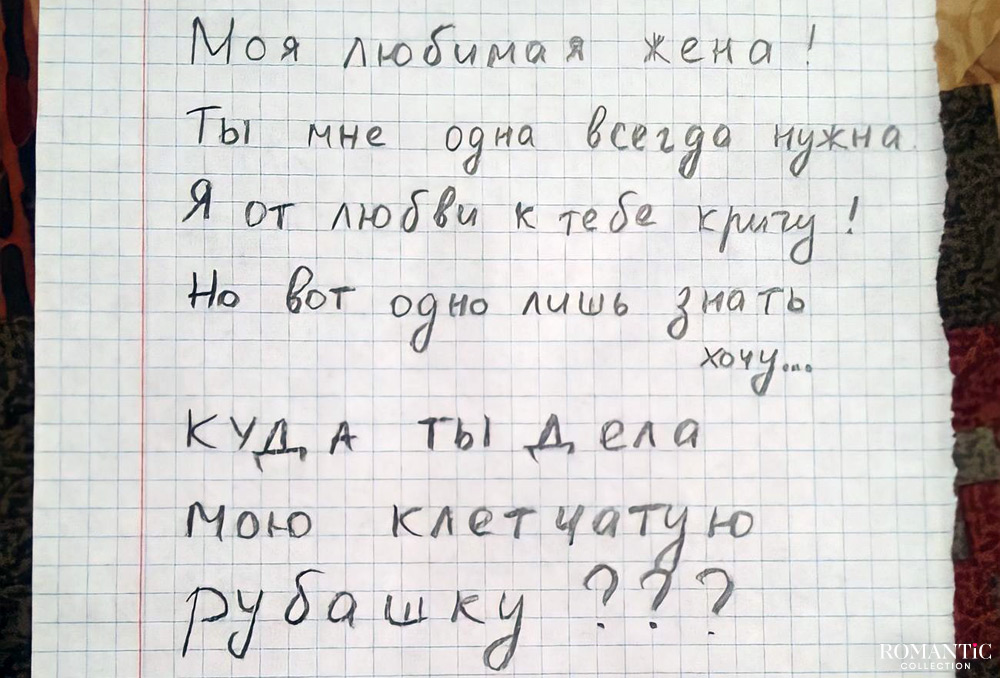 Моя любимая жена!
Ты мне одна всегда нужна.
Я от любви к тебе кричу!
Но вот одно лишь знать
хочу...
КУДА ТЫ Дела
мою клетчатую
рубашку ???
ROMANTiC
COLLECTION